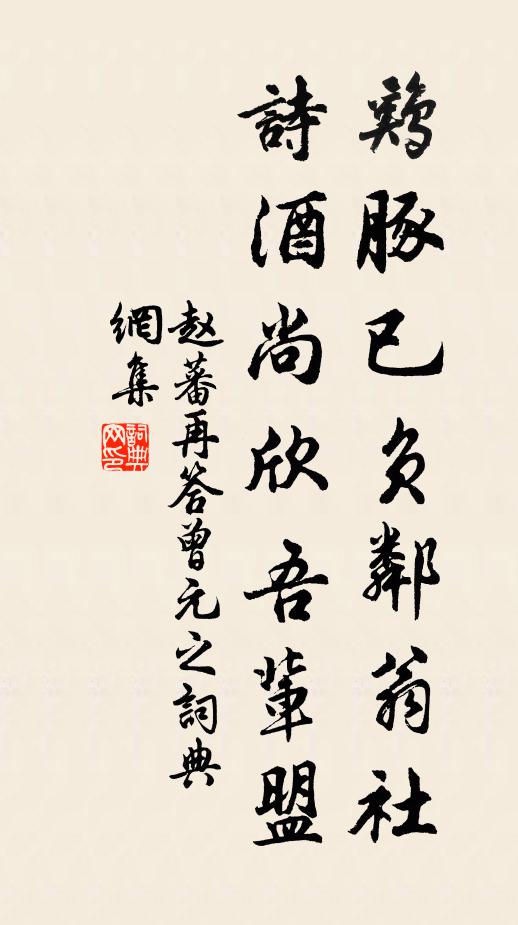 鷄豚已負鄰翁社
詩酒尚欣吾輩盟
赵蕃再答曾元之詞典
網集
詞典
网印